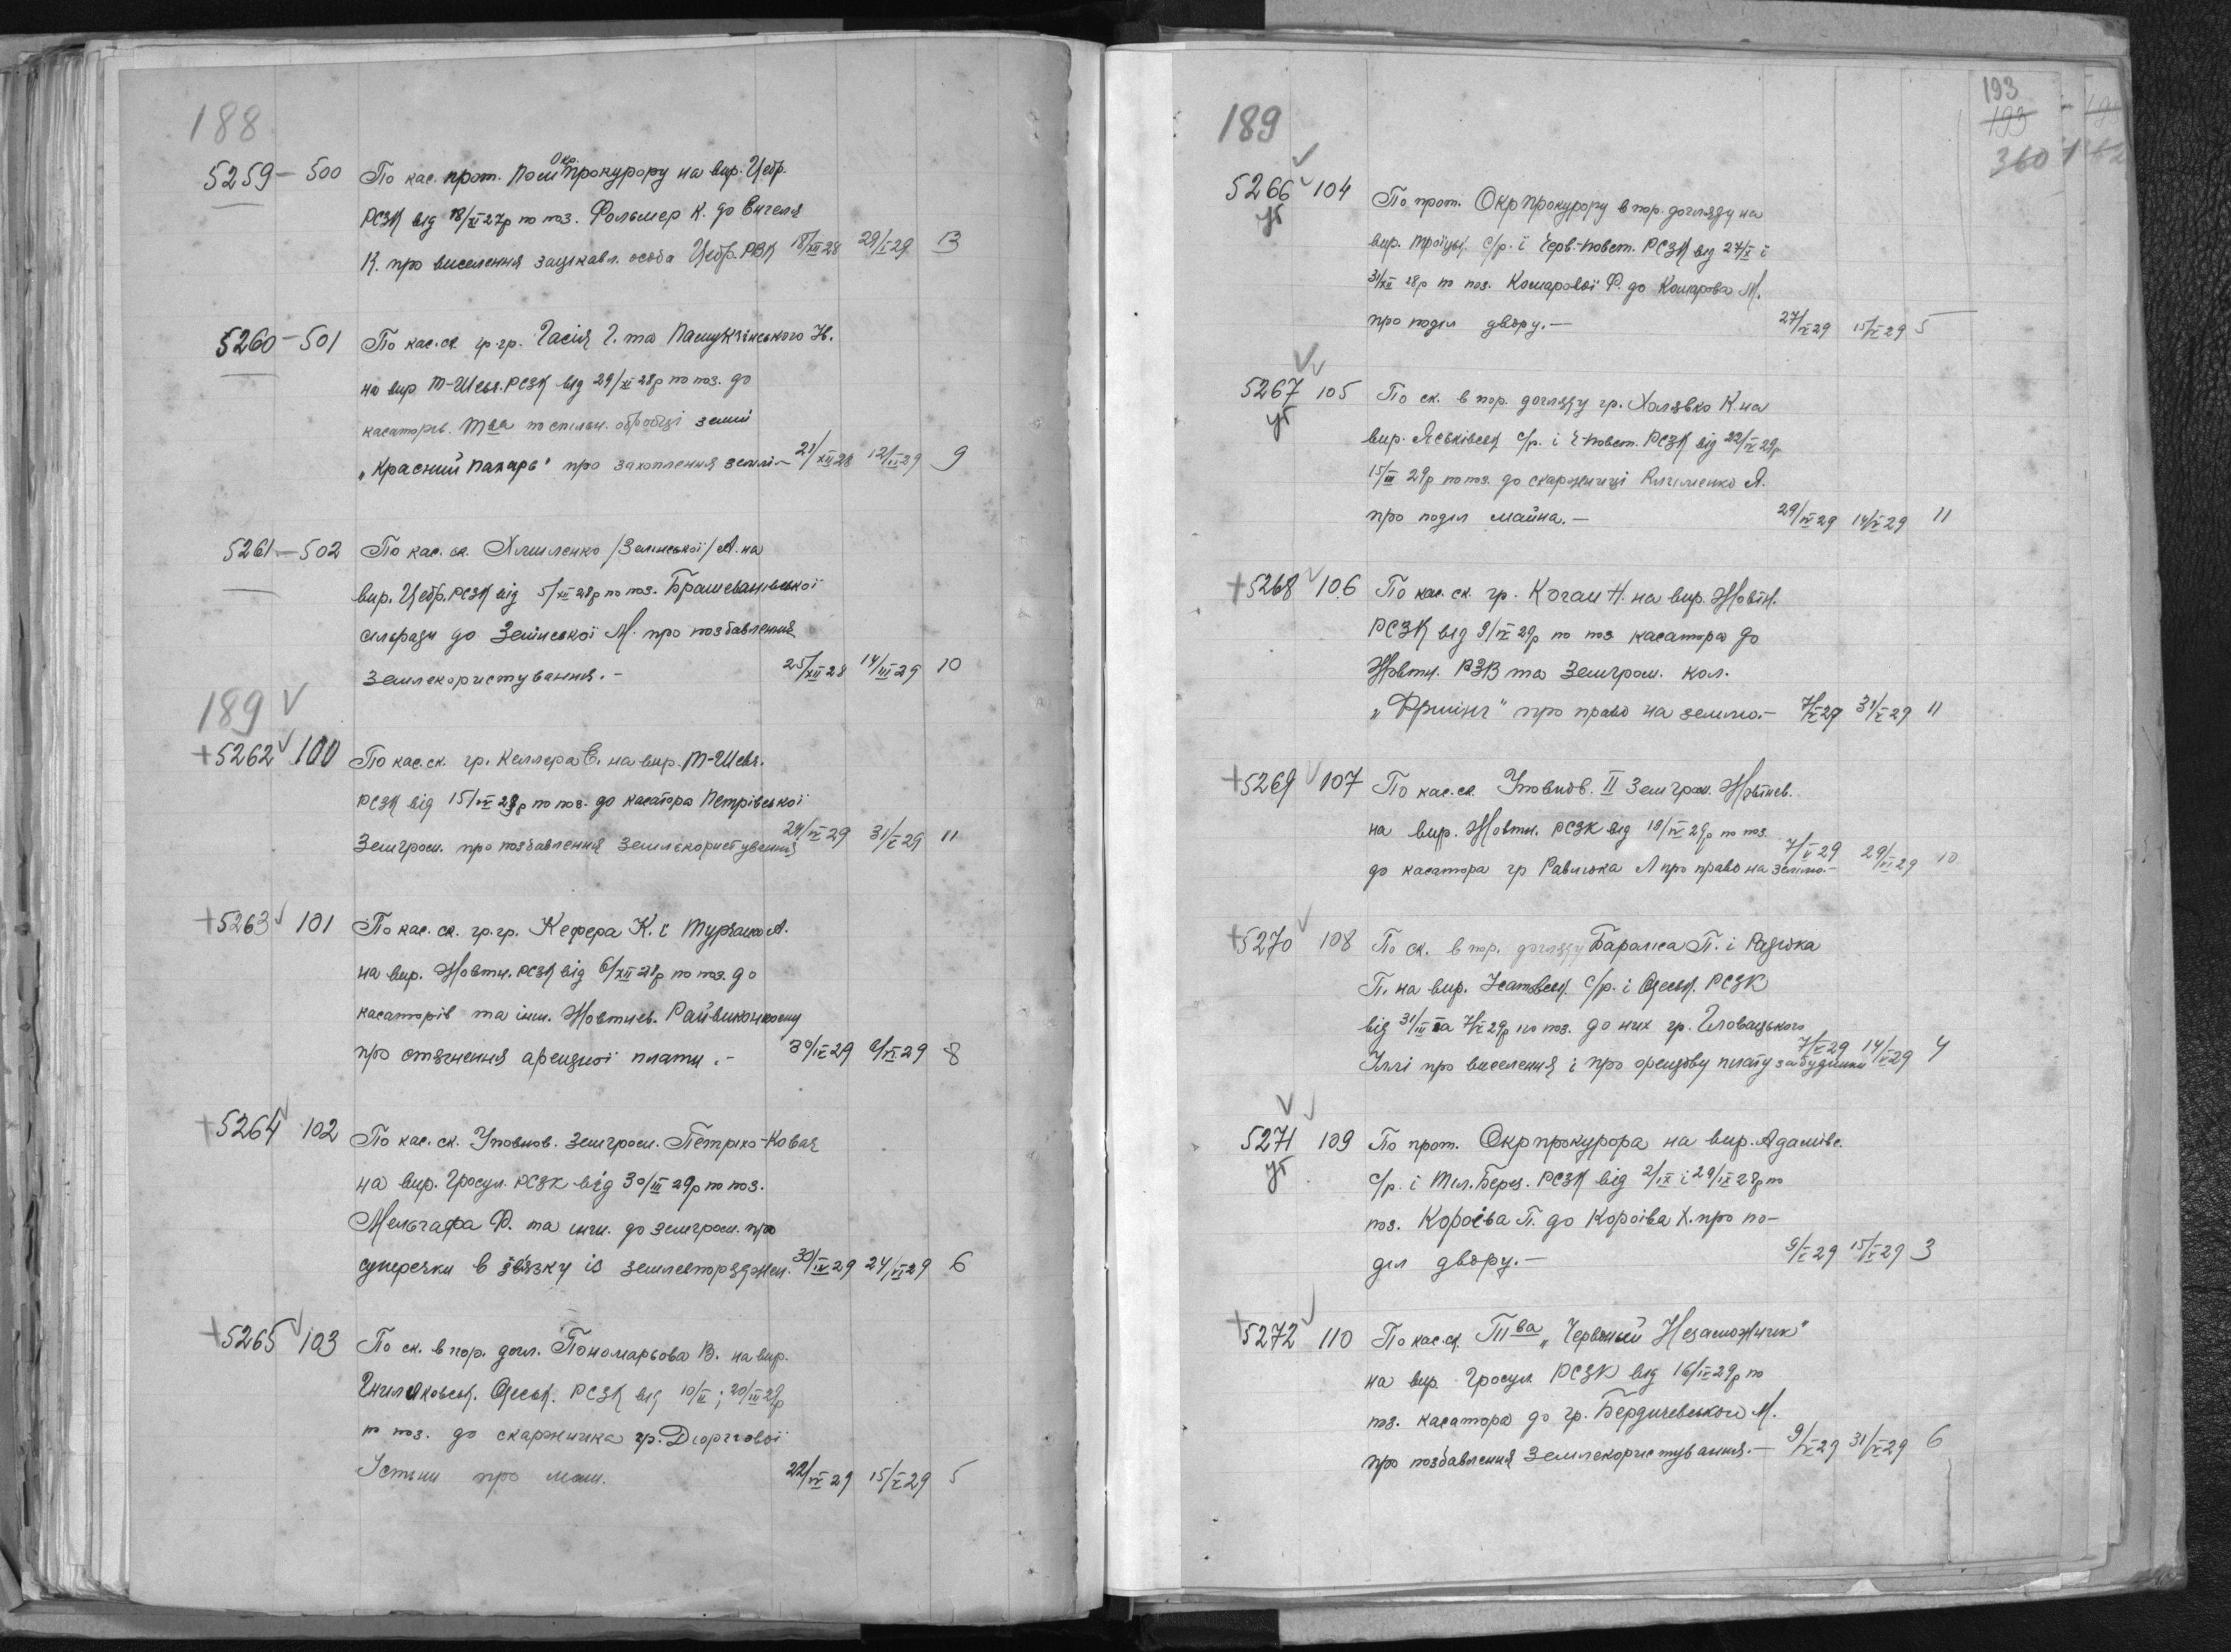 188
5259 — 500 По кас. прот. Пом Окр. прокурору на вир. Цебр.
РСЗК від 18/XI 27р по поз. Фольмер К. до Енгеля
К. про виселення зацікавл. особа Цебр. РВК 18/XII 28 29/I 29 13
5260 — 501 По кас. ск. гр. гр. Гасія Г. та
на вир Т-Шевч. РСЗК від 29/XI 28р по поз. до
касаторів. Тва по спільн. обробці землі
„Красний пахарь" про захоплення землі — 21/XII 28 12/II 29 9
5261 — 502 По кас. ск. /Земінської/ А. на
вир. Цебр. РСЗК від 5/XII 28р по поз. Брашеванівської
сільради до Земінської М. про позбавлення
землекористування. — 25/XII 28 14/III 29 10
189 V
+5262 V 100 По кас. ск. гр. Келлера Е. на вир. Т-Шевч.
РСЗК від 15/IV 29р по поз. до касатора Петрівської
Земгром. про позбавлення землекористування 24/IV 29 31/V 29 11
+5263 V 101 По кас. ск. гр. гр. Кефера К. і А.
на вир. Жовтн. РСЗК від 6/XII 28р по поз. до
касаторів та інш. Жовтнев. Райвиконкому
про стягнення арендної плати. — 30/IV 29 8
+5264 V 102 По кас. ск. Уповнов. земгром. Петріко-Ковач
на вир. Гросул. РСЗК від 30/III 29р по поз.
Мельгафа Ф. та інш. до земгром. про
суперечки в звязку із землевпоряджен. 30/IV 29 24/VI 29 6
+5265 V 103 По ск. в пор. догл. Пономарьова В. на вир.
Гниляковськ. Одеськ. РСЗК від 10/II ; 20/III 29р
по поз. до скаржника гр.
Устини про май. 22/IV 29 15/V 29 5
193
193
360
189
5266 V 104 По прот. Окрпрокурору в пор. догляду на
вир. Троїцьк. с/р. і Черв.-Повст. РСЗК від 27/X і
31/XII 28р по поз. Комарової Ф. до Комарова М.
про поділ двору. — 27/IV 29 15/V 29 5
5267 V 105 По ск. в пор. догляду гр. Халявко К. на
вир. Яськівськ с/р. і Ч-Повст. РСЗК від 22/IV 29р
15/III 29р по поз. до скаржниці Я.
про поділ майна. — 29/IV 29 14/V 29 11
+5268 V 106 По кас. ск. гр. Коган Н. на вир. Жовтн.
РСЗК від 9/IV 29р по поз касатора до
Жовтн. РЗВ та Земгром. кол.
про право на землю. — 7/V 29 31/V 29 11
+5269 V 107 По кас. ск. Уповнов. II Земгром. Жовтнев.
на вир. Жовтн. РСЗК від 19/IV 29р по поз
до касатора гр Равлюка Л про право на землю. — 7/V 29 29/VI 29 10
+5270 V 108 По ск. в пор. догляду Баралса П. і Радюка
П. на вир. Усатовськ. с/р. і Одеськ. РСЗК
від 31/III та 7/V 29р по поз. до них гр. Іловацького
Іллі про виселення і про орендову плату за будинки 7/V 29 14/V 29 4
5271 V 109 По прот. Окрпрокурора на вир. Адамівс.
с/р. і Тил. Берез. РСЗК від 2/IX і 29/IX 28р по
поз. Короїва П. до Короїва Х. про по-
діл двору. — 9/V 29 15/V 29 3
+5272 V 110 По кас. ск. Тва „Червоний Незаможник"
на вир. Гросул. РСЗК від 16/IV 29р по
поз. касатора до гр. Бердичевської М.
про позбавлення землекористування. — 9/V 29 31/V 29 6